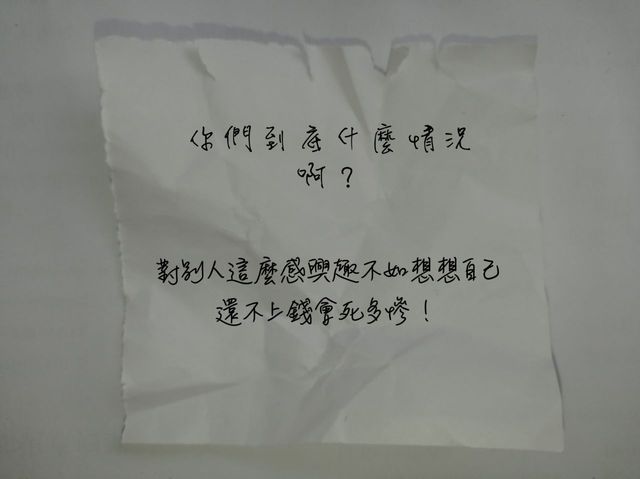 你們到底什麼情況
啊？
對別人這麼感興趣不如想想自己
還不上錢會死多慘！